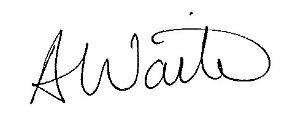 A Waite